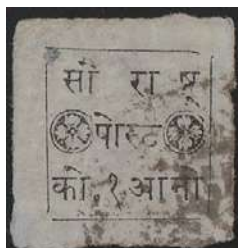 सो रा ष्ट्र
पोस्ट
को. १ आनो